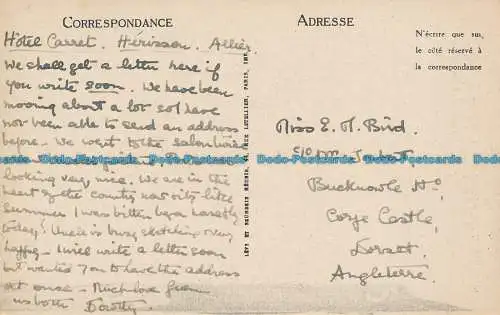 CORRESPONDANCE
Hôtel Carret. Hérisson. Allier.
We shall get a letter here if
you write soon. We have been
moving about a lot so I have
not been able to send an address
before. We went to the salon
looking very nice. We are in the
heart of the country now & it's like
summer. I was bitten by a
today! Uncle is busy sketching very
happy. I will write a letter soon
but wanted you to have the address
at once. Much love from
us both Dorothy
LÉVY ET NEURDEIN RÉUNIS, 44, RUE LETELLIER, PARIS, IMP.
ADRESSE
N'écrire que sur
le côté réservé à
la correspondance
Miss E. M. Bird.
Bucknowle Ho,
Corfe Castle,
Dorset,
Angleterre.
Dodo-Postcards Dodo-Postcards Dodo-Postcards Dodo-Postcards